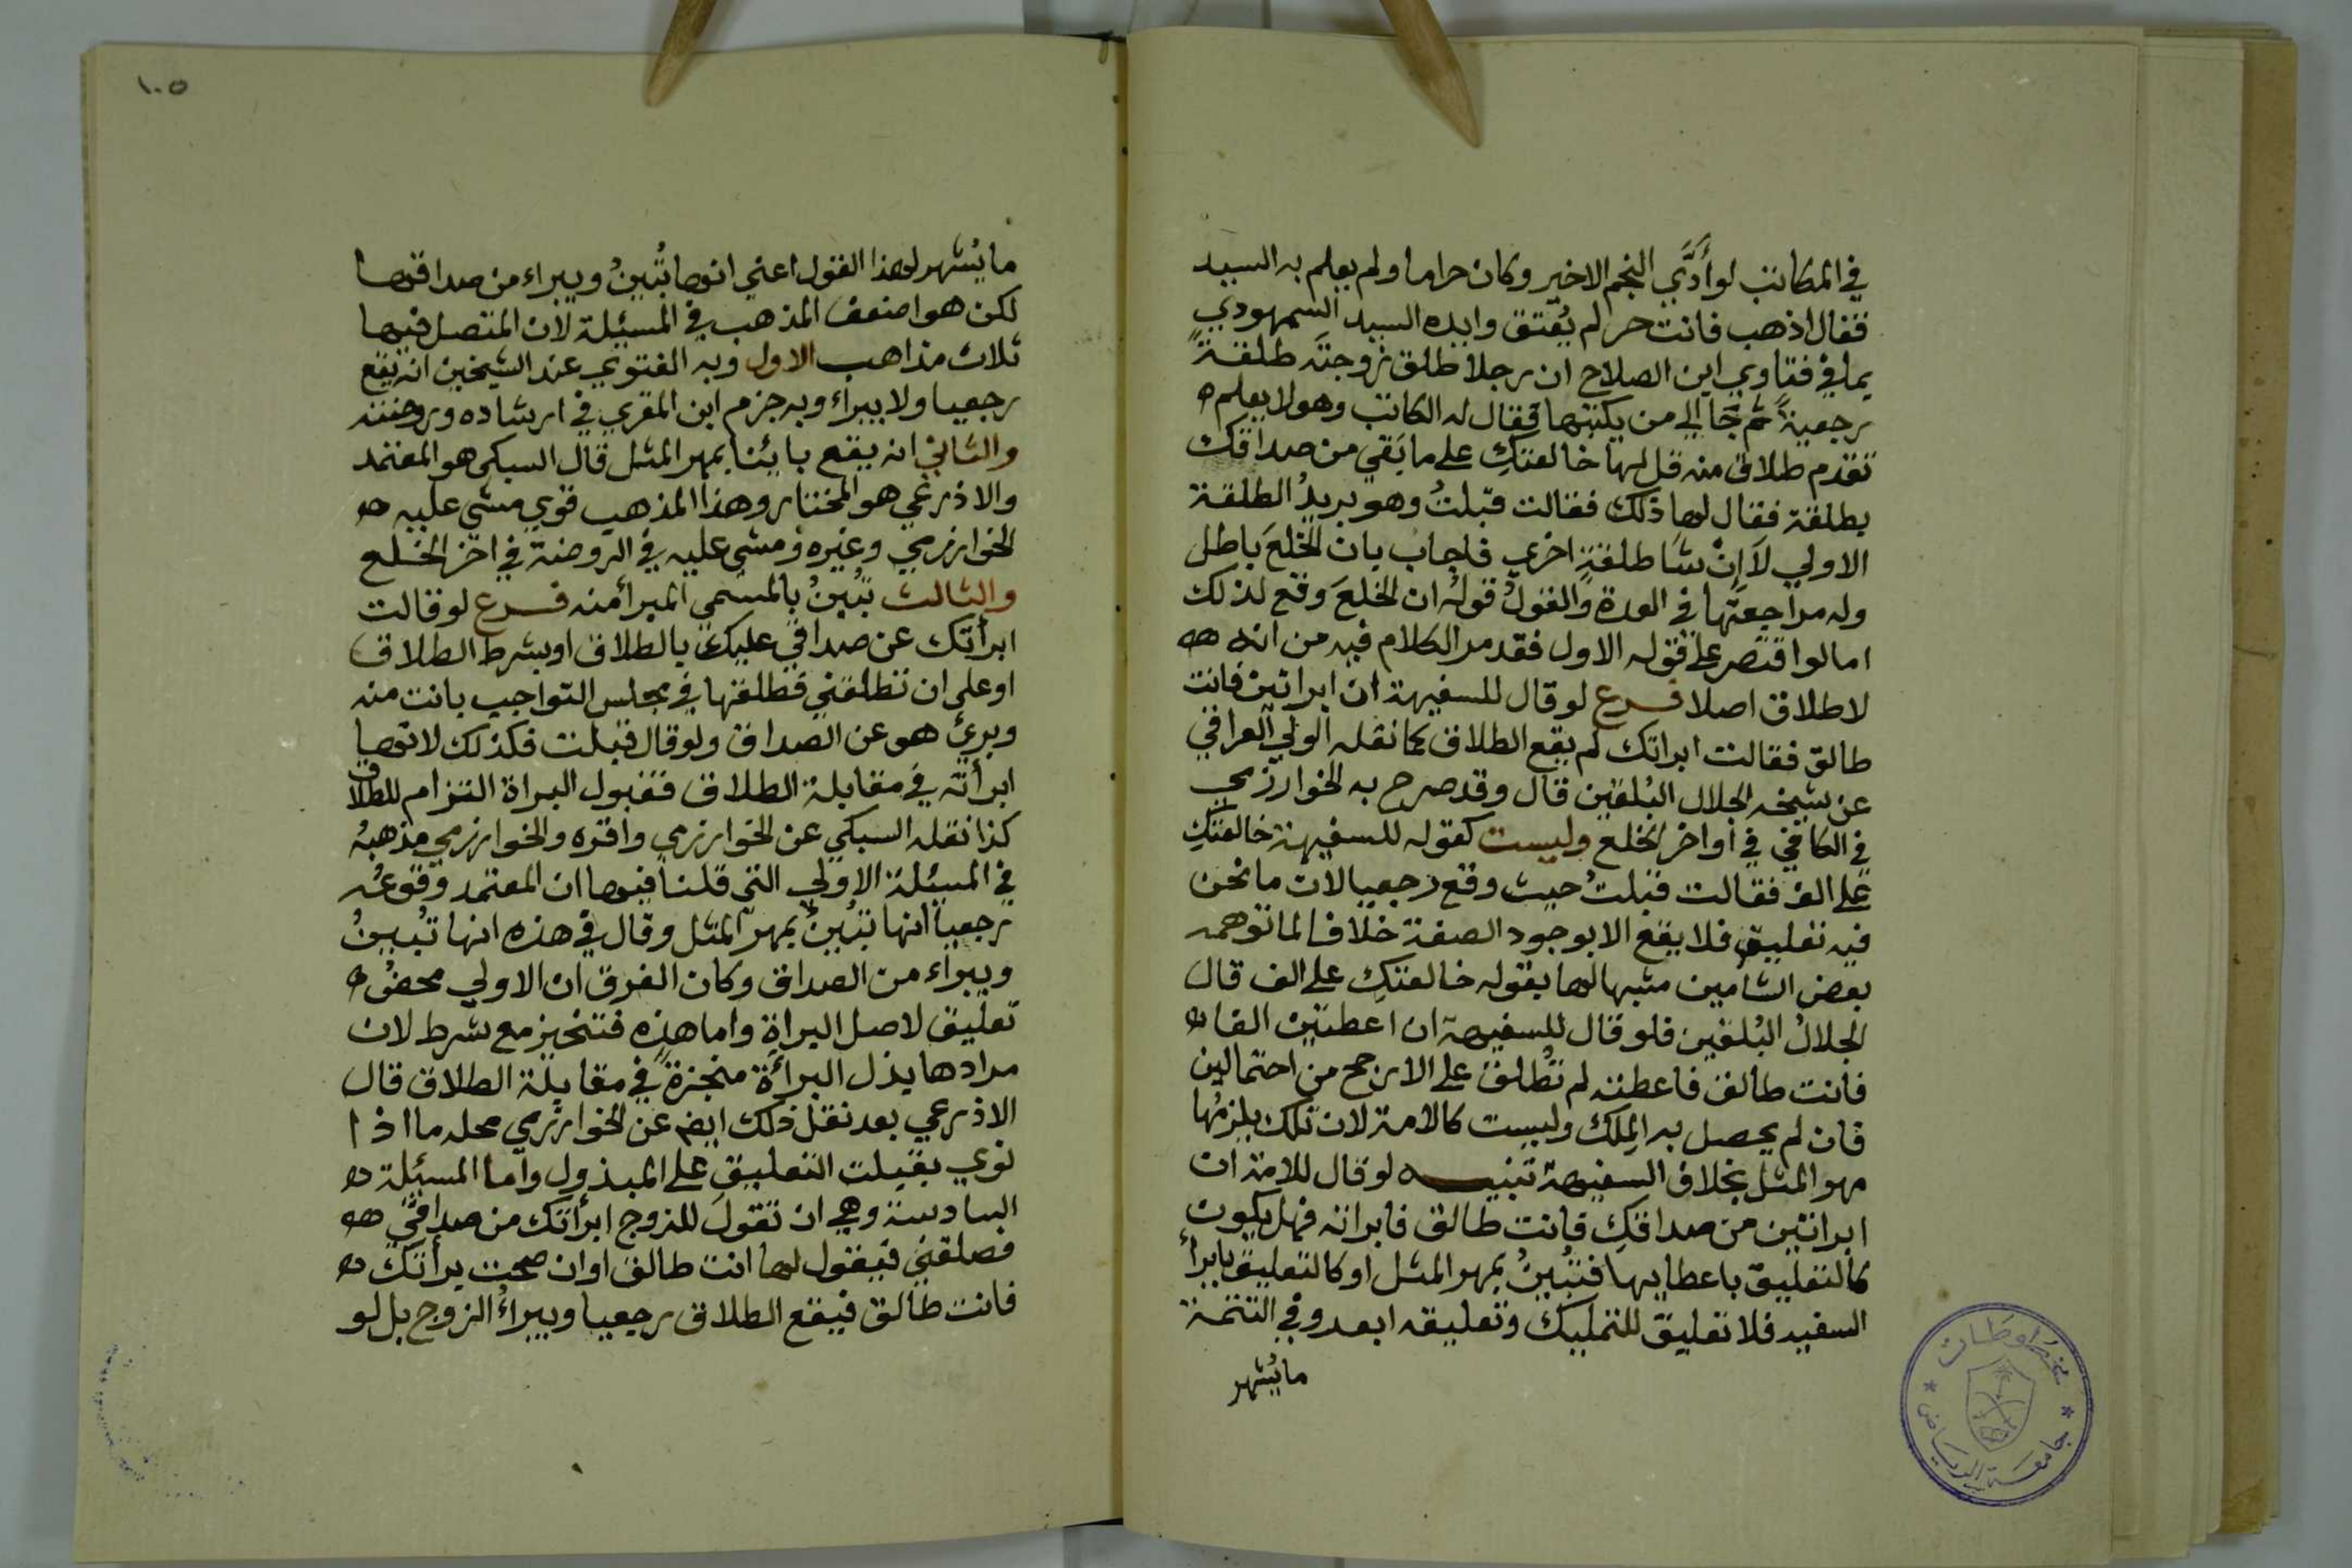 في المكاتب لو أدَّي النجم الاخير وكان حراما ولم يعلم به السيد
فقال اذهب فانت حر لم يُعتق وايده السيد السمهودي
بما في فتاوي ابن الصلاح ان رجلا طلق زوجته طلقةً
رجعيةً ثم جَا الي من يكتبها فقال له الكاتب وهو لا يعلم
تقدم طلاق منه قل لها خالعتكِ علي ما بَقي من صداقك
بطلقة فقال لها ذلك فقالت قبلتُ وهو يريدُ الطلقة
الاولي لَا اِنْشَا طلقةٍ اخري فاجاب بان الخلعَ باطل
وله مراجعتُها في العدة والقولُ قولُه ان الخلعَ وقع لذلك
اما لو اقتصر علي قوله الاول فقد مر الكلام فيه من انه
لا طلاق اصلا فرع لو قال للسفيهة ان ابراتين فانت
طالق فقالت ابراتك لم يقع الطلاق كما نقله الولي العراقي
عن شيخه الجلال البُلقيني قال وقد صرح به الخوارزمي
في الكافي في اواخر الخلع وليست كقوله للسفيهة خالعتكِ
علي الف فقالت قبلتُ حيث وقع رجعيا لان ما نحن
فيه تعليق فلا يقع الا بوجود الصفة خلافا لما توهمه
بعض الشاميين مشبها لها بقوله خالعتكِ علي الف قال
الجلالُ البُلقيني فلو قال للسفيهة ان اعطيتين الفا
فانت طالق فاعطته لم تُطلق علي الارجح من احتمالين
فان لم يحصل به المِلك وليست كالامة لان تلك يلزمُها
مهر المثل بخلاف السفيهة تنبيه لو قال للامة ان
ابراتين من صداقكِ فانت طالق فابراته فهل يكون
كالتعليق باعطايها فتُبينُ بمهر المثل او كالتعليق بابرأ
السفيه فلا تعليق للتمليك وتعليقه ابعد وفي التتمة
ما يُشهر
١٠٥
ما يُشهر لهذا القول اعني انها تُبينُ ويبراء من صداقها
لكن هو اضعف المذهب في المسئلة لان المتصل فيها
ثلاث مذاهب الاول وبه الفتوي عند الشيخين انه يقع
رجعيا ولا يبراء وبه جزم ابن المقري في ارشاده وروضته
والثاني انه يقع بائنا بمهر المثل قال السبكي هو المعتمد
والاذرعي هو المختار وهذا المذهب قوي مشي عليه
الخوارزمي وغيره ومشي عليه في الروضة في اخر الخلع
والثالث تُبينُ بالمسمي المبرأ منه فرع لو قالت
ابرأتك عن صداقي عليك بالطلاق او بشرط الطلاق
او علي ان تطلقني فطلقها في مجلس التواجب بانت منه
وبرئ هو عن الصداق ولو قال قبلت فكذلك لانها
ابرأته في مقابلة الطلاق فقبول البراة التزام للطلاق
كذا نقله السبكي عن الخوارزمي واقره والخوارزمي مذهبهُ
في المسئلة الاولي التي قلنا فيها ان المعتمد وقوعُه
رجعيا انها تُبينُ بمهر المثل وقال في هذه انها تُبينُ
ويبراء من الصداق وكان الفرق ان الاولي محضُ
تعليق لاصل البراة واما هذه فتنجيز مع شرط لان
مرادها بذل البرأة منجزةً في مقابلة الطلاق قال
الاذرعي بعد نقل ذلك ايض عن الخوارزمي محله ما اذا
نوي بقبلت التعليق علي المبذول واما المسئلة
السادسة وهي ان تقولَ للزوج ابرأتك من صداقيَّ
فصلقني فيقول لها انت طالق او ان صحت برأتك
فانت طالق فيقع الطلاق رجعيا ويبراءُ الزوج بل لو
مخطوطات
جامعة الرياض